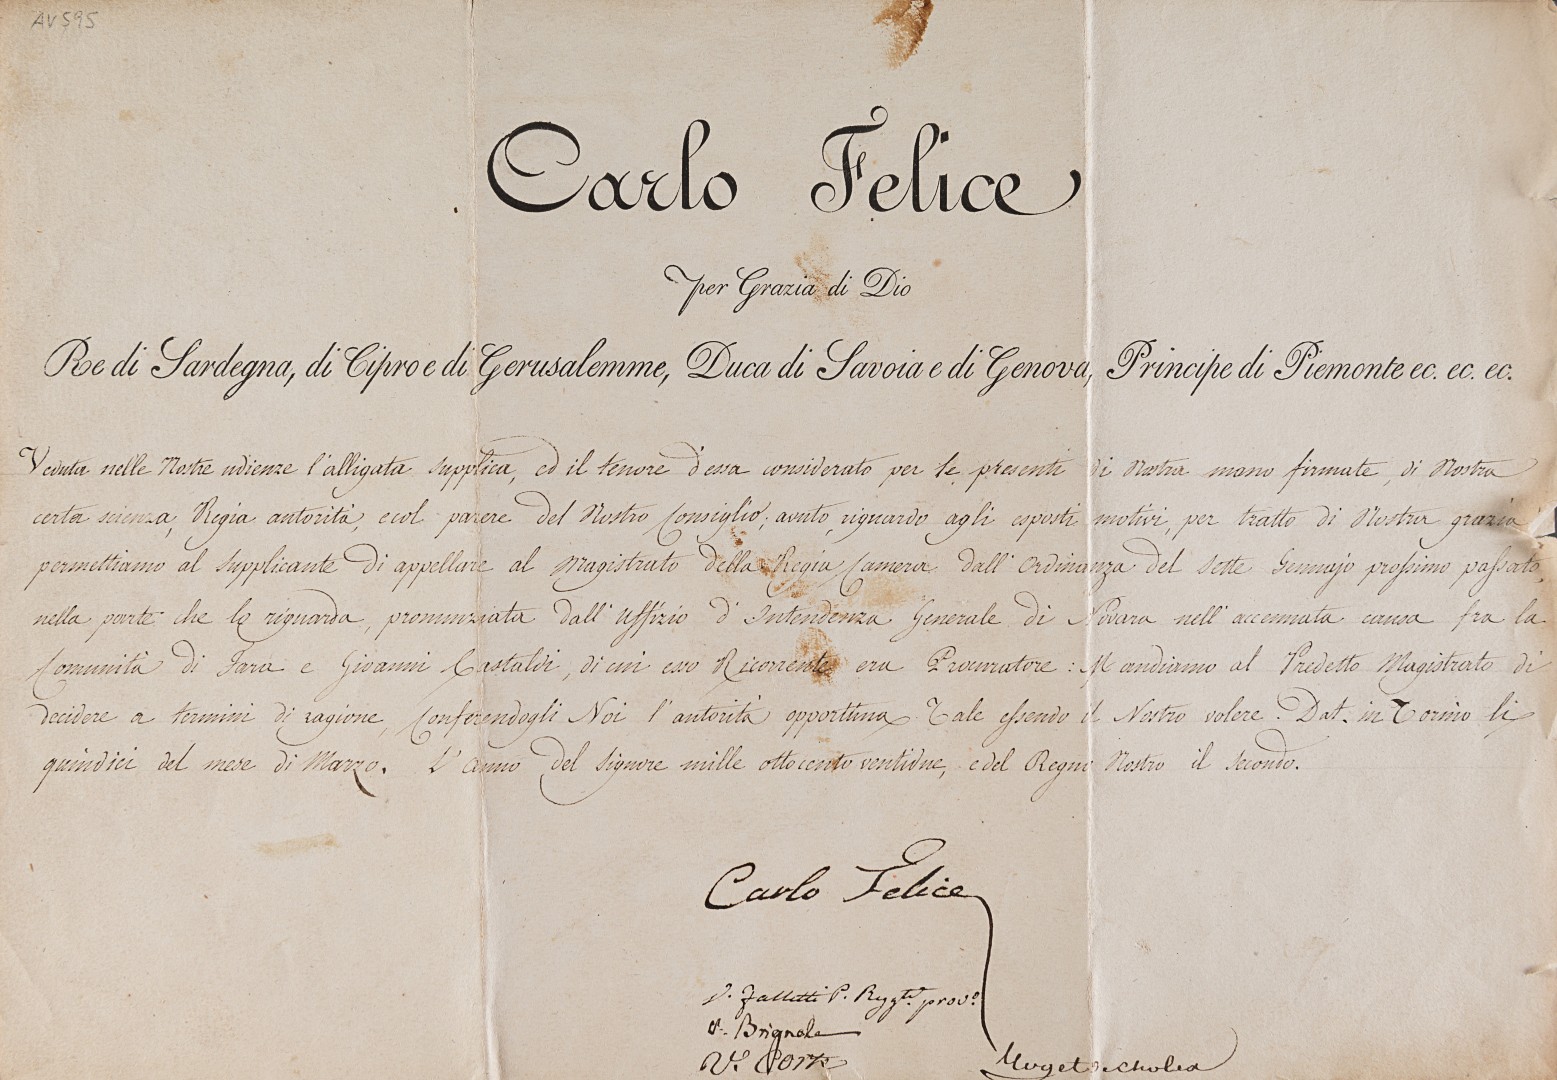 AV 595
Carlo Felice
per Grazia di Dio
Re di Sardegna, di Cipro e di Gerusalemme, Duca di Savoia e di Genova, Principe di Piemonte ec. ec. ec.
Veduta nelle Nostre udienze l'alligata supplica, ed il tenore d'essa considerato per le presenti di Nostra mano firmate, di Nostra
certa scienza, Regia autorità, e col parere del Nostro Consiglio; avuto riguardo agli esposti motivi, per tratto di Nostra grazia
permettiamo al Supplicante di appellare al Magistrato della Regia Camera dall'Ordinanza del sette Gennajo prossimo passato,
nella parte che lo riguarda, pronunziata dall'Uffizio d'Intendenza Generale di Novara nell'accennata causa fra la
Comunità di Fara e Giovanni Castaldi, di cui esso Ricorrente era Procuratore: Mandiamo al Predetto Magistrato di
decidere a termini di ragione, Conferendogli Noi l'autorità opportuna. Tale essendo il Nostro volere. Dat. in Torino li
quindici del mese di Marzo. L'anno del Signore mille ottocento ventidue, e del Regno Nostro il secondo.
Carlo Felice
V. Falletti P. Regg.te prov.o
V. Brignole
V.